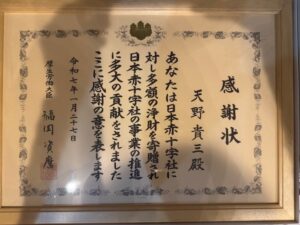 感謝状
天野貴三殿
あなたは日本赤十字社に
対し多額の浄財を寄贈され
日本赤十字社の事業の推進
に多大の貢献をされました
ここに感謝の意を表します
令和七年一月二十七日
厚生労働大臣
福岡資麿